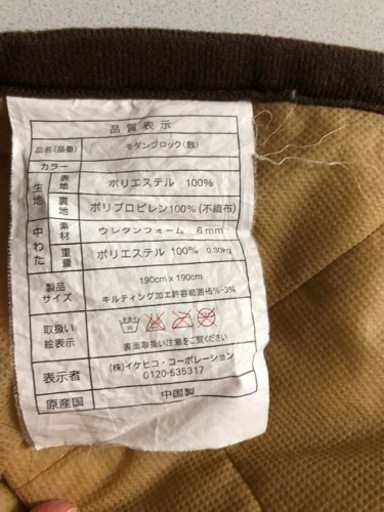 品質表示
品名(品番) モダンブロック(敷)
カラー
生地 表地 ポリエステル 100%
裏地 ポリプロピレン100%(不織布)
中わた 素材 ウレタンフォーム 6mm
重量 ポリエステル 100% 0.30kg
製品サイズ 190cm x 190cm
キルティング加工許容範囲+5%-3%
取扱い絵表示
裏面取扱い注意をご覧下さい
表示者 (株)イケヒコ・コーポレーション
0120-535317
原産国 中国製